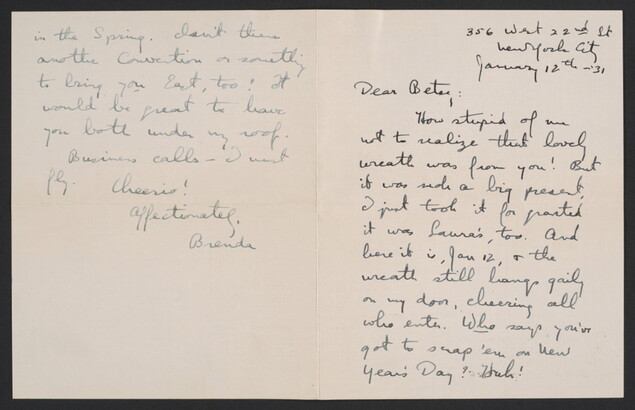 356 West 22nd St
New York City
January 12th - 31
Dear Betsy;
How stupid of me
not to realize that lovely
wreath was from you! But
it was such a big present,
I just took it for granted
it was Laura's, too. And
here it is, Jan 12, & the
wreath still hangs gaily
on my door, cheering all
who enter. Who says you've
got to scrap 'em on New
Year's Day? Huh!
in the Spring. Isn't there
another Convention or something
to bring you East, too? It
would be great to have
you both under my roof.
Business calls - I must
fly. Cheerio!
Affectionately,
Brenda